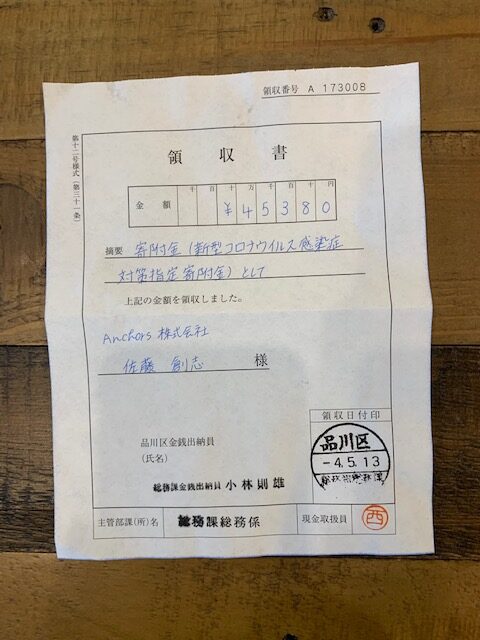 領収番号 A 173008
第十二号様式(第三十一条)
領収書
金額 千 百 十 万 千 百 十 円
¥45380
摘要 寄附金(新型コロナウイルス感染症
対策指定寄附金)として
上記の金額を領収しました。
Anchors 株式会社
佐藤 創志 様
領収日付印
品川区
-4.5.13
品川区金銭出納員
(氏名)
総務課金銭出納員 小林則雄
主管部課(所)名 総務課総務係 現金取扱員 西